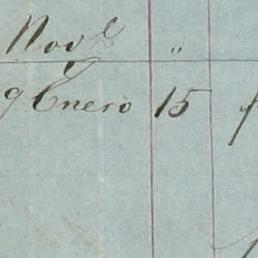 Novᵉ "
9 Enero 15